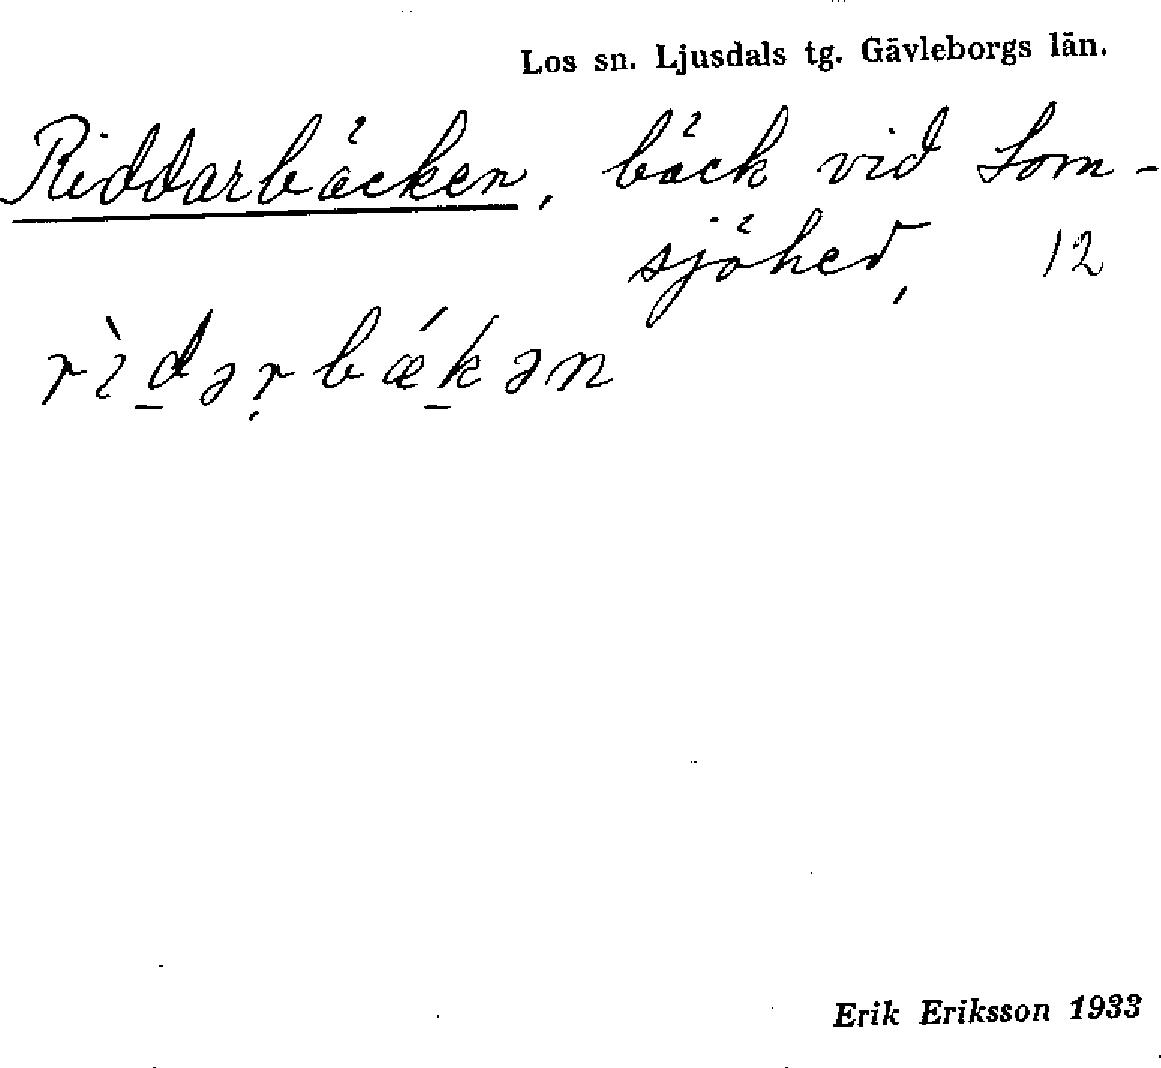 Los sn. Ljusdals tg. Gävleborgs län.
Riddarbäcken, bäck vid Lom-
sjöhed, 12
rìd̲əṛbǽk̲ən
Erik Eriksson 1933